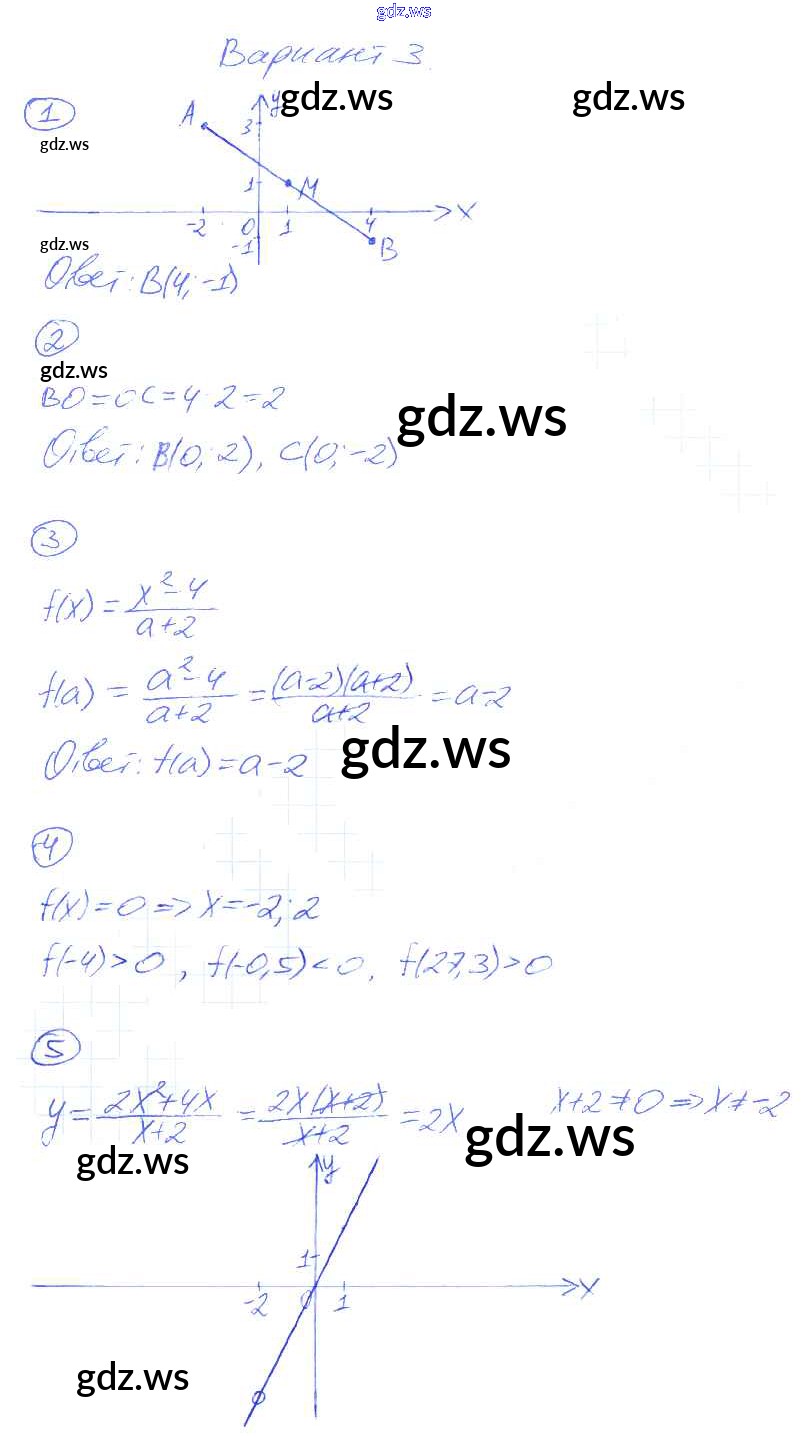 gdz.ws
Вариант 3.
gdz.ws gdz.ws
1
gdz.ws
A y 3 1 M
-2 0 1 4 x
-1 B
gdz.ws
Ответ: B(4; -1)
2
gdz.ws
BO = OC = 4 : 2 = 2
gdz.ws
Ответ: B(0; 2), C(0; -2)
3
f(x) = (x² - 4)/(a + 2)
f(a) = (a² - 4)/(a + 2) = (a-2)(a+2)/(a+2) = a-2
gdz.ws
Ответ: f(a) = a - 2
4
f(x) = 0 => x = -2; 2
f(-4) > 0, f(-0,5) < 0, f(27,3) > 0
5
y = (2x² + 4x)/(x + 2) = 2x(x+2)/(x+2) = 2x x+2 ≠ 0 => x ≠ -2
gdz.ws
gdz.ws
y
1
-2 0 1 x
gdz.ws